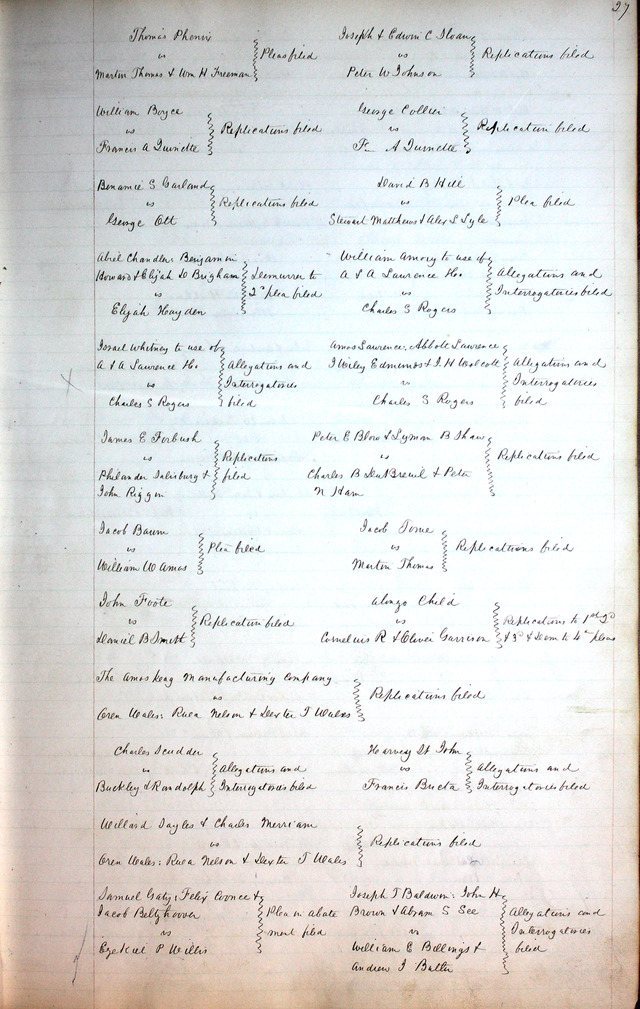 27
Thomas Phenix
vs
Martin Thomas & Wm H Freeman
Pleas filed
Joseph & Edwin C Sloan
vs
Peter W Johnson
Replications filed
William Boyce
vs
Francis A Quinette
Replications filed
George Collier
vs
A Quinette
Replication filed
Benamie S Garland
vs
George Ott
Replications filed
David B Hill
vs
Stewart Matthews & Alex S Lyle
Plea filed
Abiel Chandler, Benjamin
Howard & Elijah D Brigham
vs
Elijah Hayden
Demurrer to
2d plea filed
William Amory to use of
A & A Lawrence & Co.
vs
Charles S Rogers
Allegations and
Interrogatories filed
Israel Whitney to use of
A & A Lawrence & Co.
vs
Charles S Rogers
Allegations and
Interrogatories
filed
Amos Lawrence, Abbott Lawrence
Edmunds & J. H Wolcott
vs
Charles S Rogers
Allegations and
Interrogatories
filed
x
James E Forbush
vs
Philander Salisbury &
John Riggin
Replications
filed
Peter E Blow & Lyman B Shaw
vs
Charles B DuBreuil & Peter
N Ham
Replications filed
Jacob Baum
vs
William W Amos
Plea filed
Jacob Tome
vs
Martin Thomas
Replications filed
John Foote
vs
Daniel B Smith
Replication filed
Alonzo Child
vs
Cornelius R & Oliver Garrison
Replications to 1st 2d
& 3d & Dem to 4th pleas
The Amoskeag Manufacturing Company
vs
Oren Wales; Rufa Nelson & Dexter T Wales
Replications filed
Charles Scudder
vs
Buckley & Randolph
Allegations and
Interrogatories filed
Harvey St John
vs
Francis Bucta
Allegations and
Interrogatories filed
Willard Sayles & Charles Merriam
vs
Oren Wales; Rufa Nelson & Dexter T Wales
Replications filed
Samuel Gaty; Felix Coonce &
Jacob Beltzhoover
vs
Ezekiel P Willis
Plea in abate
ment filed
Joseph T Baldwin; John H
Brown & Abram S See
vs
William E Billings &
Andrew J Butler
Allegations and
Interrogatories
filed